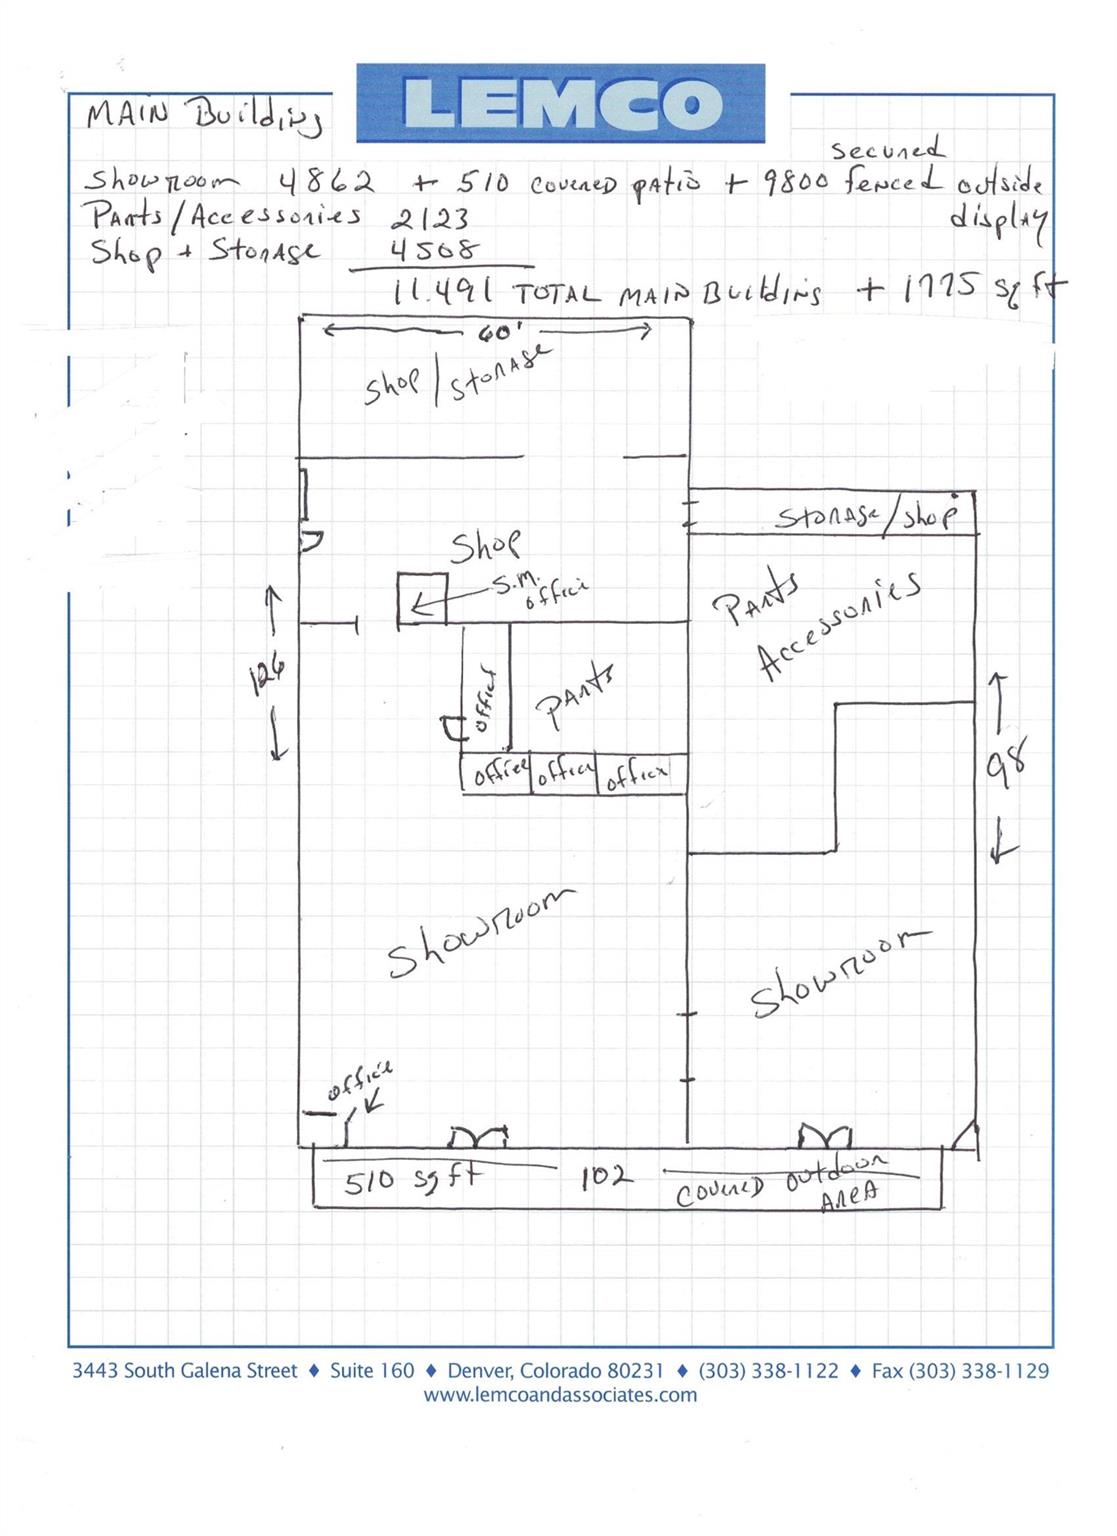 LEMCO
MAIN Building
secured
Showroom 4862 + 510 covered patio + 9800 fenced outside
display
Parts/Accessories 2123
Shop + Storage 4508
11.491 TOTAL MAIN Building + 1775 sq ft
60'
Shop/Storage
Storage/Shop
Shop
S.M. office
Parts
Accessories
126
office
Parts
office office office
98
Showroom
Showroom
office
510 sq ft 102 covered outdoor
Area
3443 South Galena Street ♦ Suite 160 ♦ Denver, Colorado 80231 ♦ (303) 338-1122 ♦ Fax (303) 338-1129
www.lemcoandassociates.com